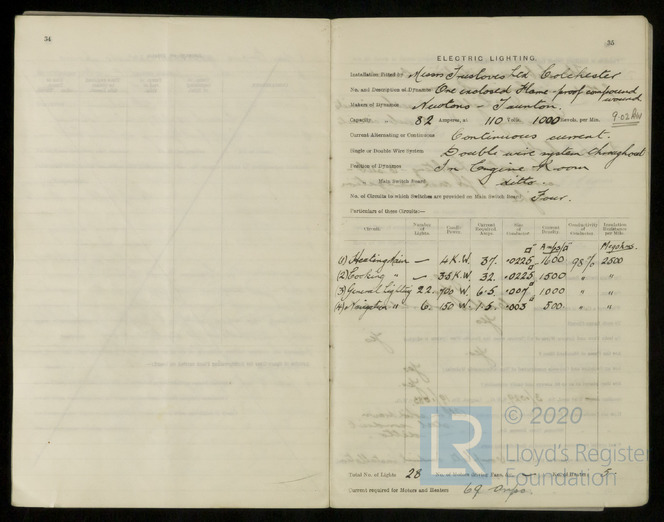 34
35
ELECTRIC LIGHTING.
Installation fitted by Messrs Truslove Ltd Colchester
No. and Description of Dynamos One enclosed flame-proof compound wound
Makers of Dynamos Newtons - Taunton.
Capacity 82 Amperes, at 110 Volts, 1000 Revols. per Min. 9.02 KW
Current Alternating or Continuous Continuous current.
Single or Double Wire System Double wire system throughout
Position of Dynamos In Engine Room
Main Switch Board ditto
No. of Circuits to which Switches are provided on Main Switch Board Four.
Particulars of these Circuits:—
Circuit. Number of Lights. Candle Power. Current Required Amps. Size of Conductor. Current Density. Conductivity of Conductor. Insulation Resistance per mile.
□" Amps/□" Megohms.
(1) Heating Main — 4 K.W. 37. .0225 1600 98% 2500
(2) Cooking " — 3.5 K.W. 32. .0225 1500 " "
(3) General Lighting 22. 700 W. 6.5. .007 1000 " "
(4) Navigation " 6. 150 W. 1.5. .003 500 " "
Total No. of Lights 28 No. of Motors driving Fans, &c. — No. of Heaters 5
Current required for Motors and Heaters 69 amps.
LR
© 2020
Lloyd's Register
Foundation